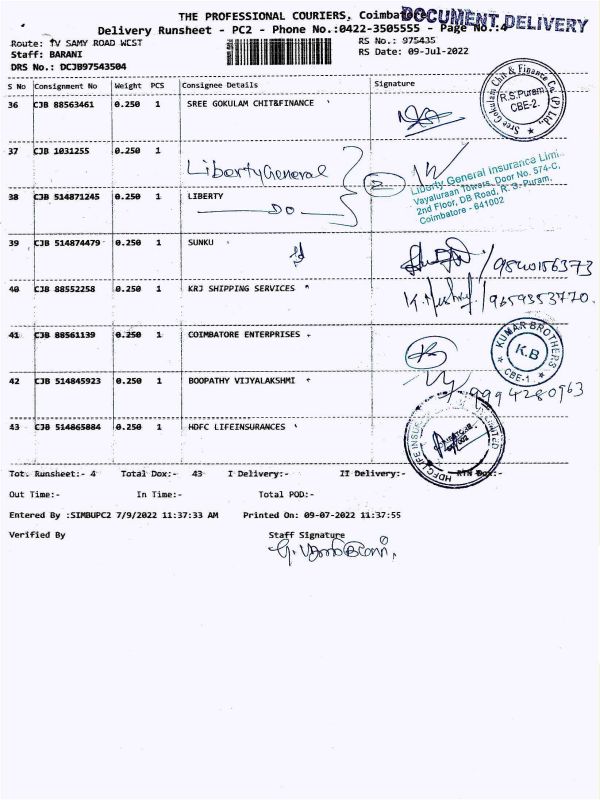 THE PROFESSIONAL COURIERS, Coimbat
DOCUMENT DELIVERY
Delivery Runsheet - PC2 - Phone No.:0422-3505555 - Page No.:4
Route: TV SAMY ROAD WEST
RS No.: 975435
Staff: BARANI
RS Date: 09-Jul-2022
DRS No.: DCJB97543504
S No Consignment No Weight PCS Consignee Details Signature
36 CJB 88563461 0.250 1 SREE GOKULAM CHIT&FINANCE
Sree Gokulam Chit & Finance Co. (P) Ltd.,
R.S.Puram
CBE-2.
37 CJB 1031255 0.250 1
Liberty General
Liberty General Insurance Limi
Vayaluraan Towers, Door No. 574-C,
2nd Floor, DB Road, R. S. Puram,
Coimbatore - 641002
38 CJB 514871245 0.250 1 LIBERTY
DO
39 CJB 514874479 0.250 1 SUNKU
9840156373
40 CJB 88552258 0.250 1 KRJ SHIPPING SERVICES
9659353770.
41 CJB 88561139 0.250 1 COIMBATORE ENTERPRISES
KUMAR BROTHERS
K.B
CBE-1
42 CJB 514845923 0.250 1 BOOPATHY VIJYALAKSHMI
9994280963
43 CJB 514865884 0.250 1 HDFC LIFEINSURANCES
HDFC LIFE INSU LIMITED
Tot. Runsheet:- 4 Total Dox:- 43 I Delivery:- II Delivery:- RTN Dox:-
Out Time:- In Time:- Total POD:-
Entered By :SIMBUPC2 7/9/2022 11:37:33 AM Printed On: 09-07-2022 11:37:55
Verified By Staff Signature